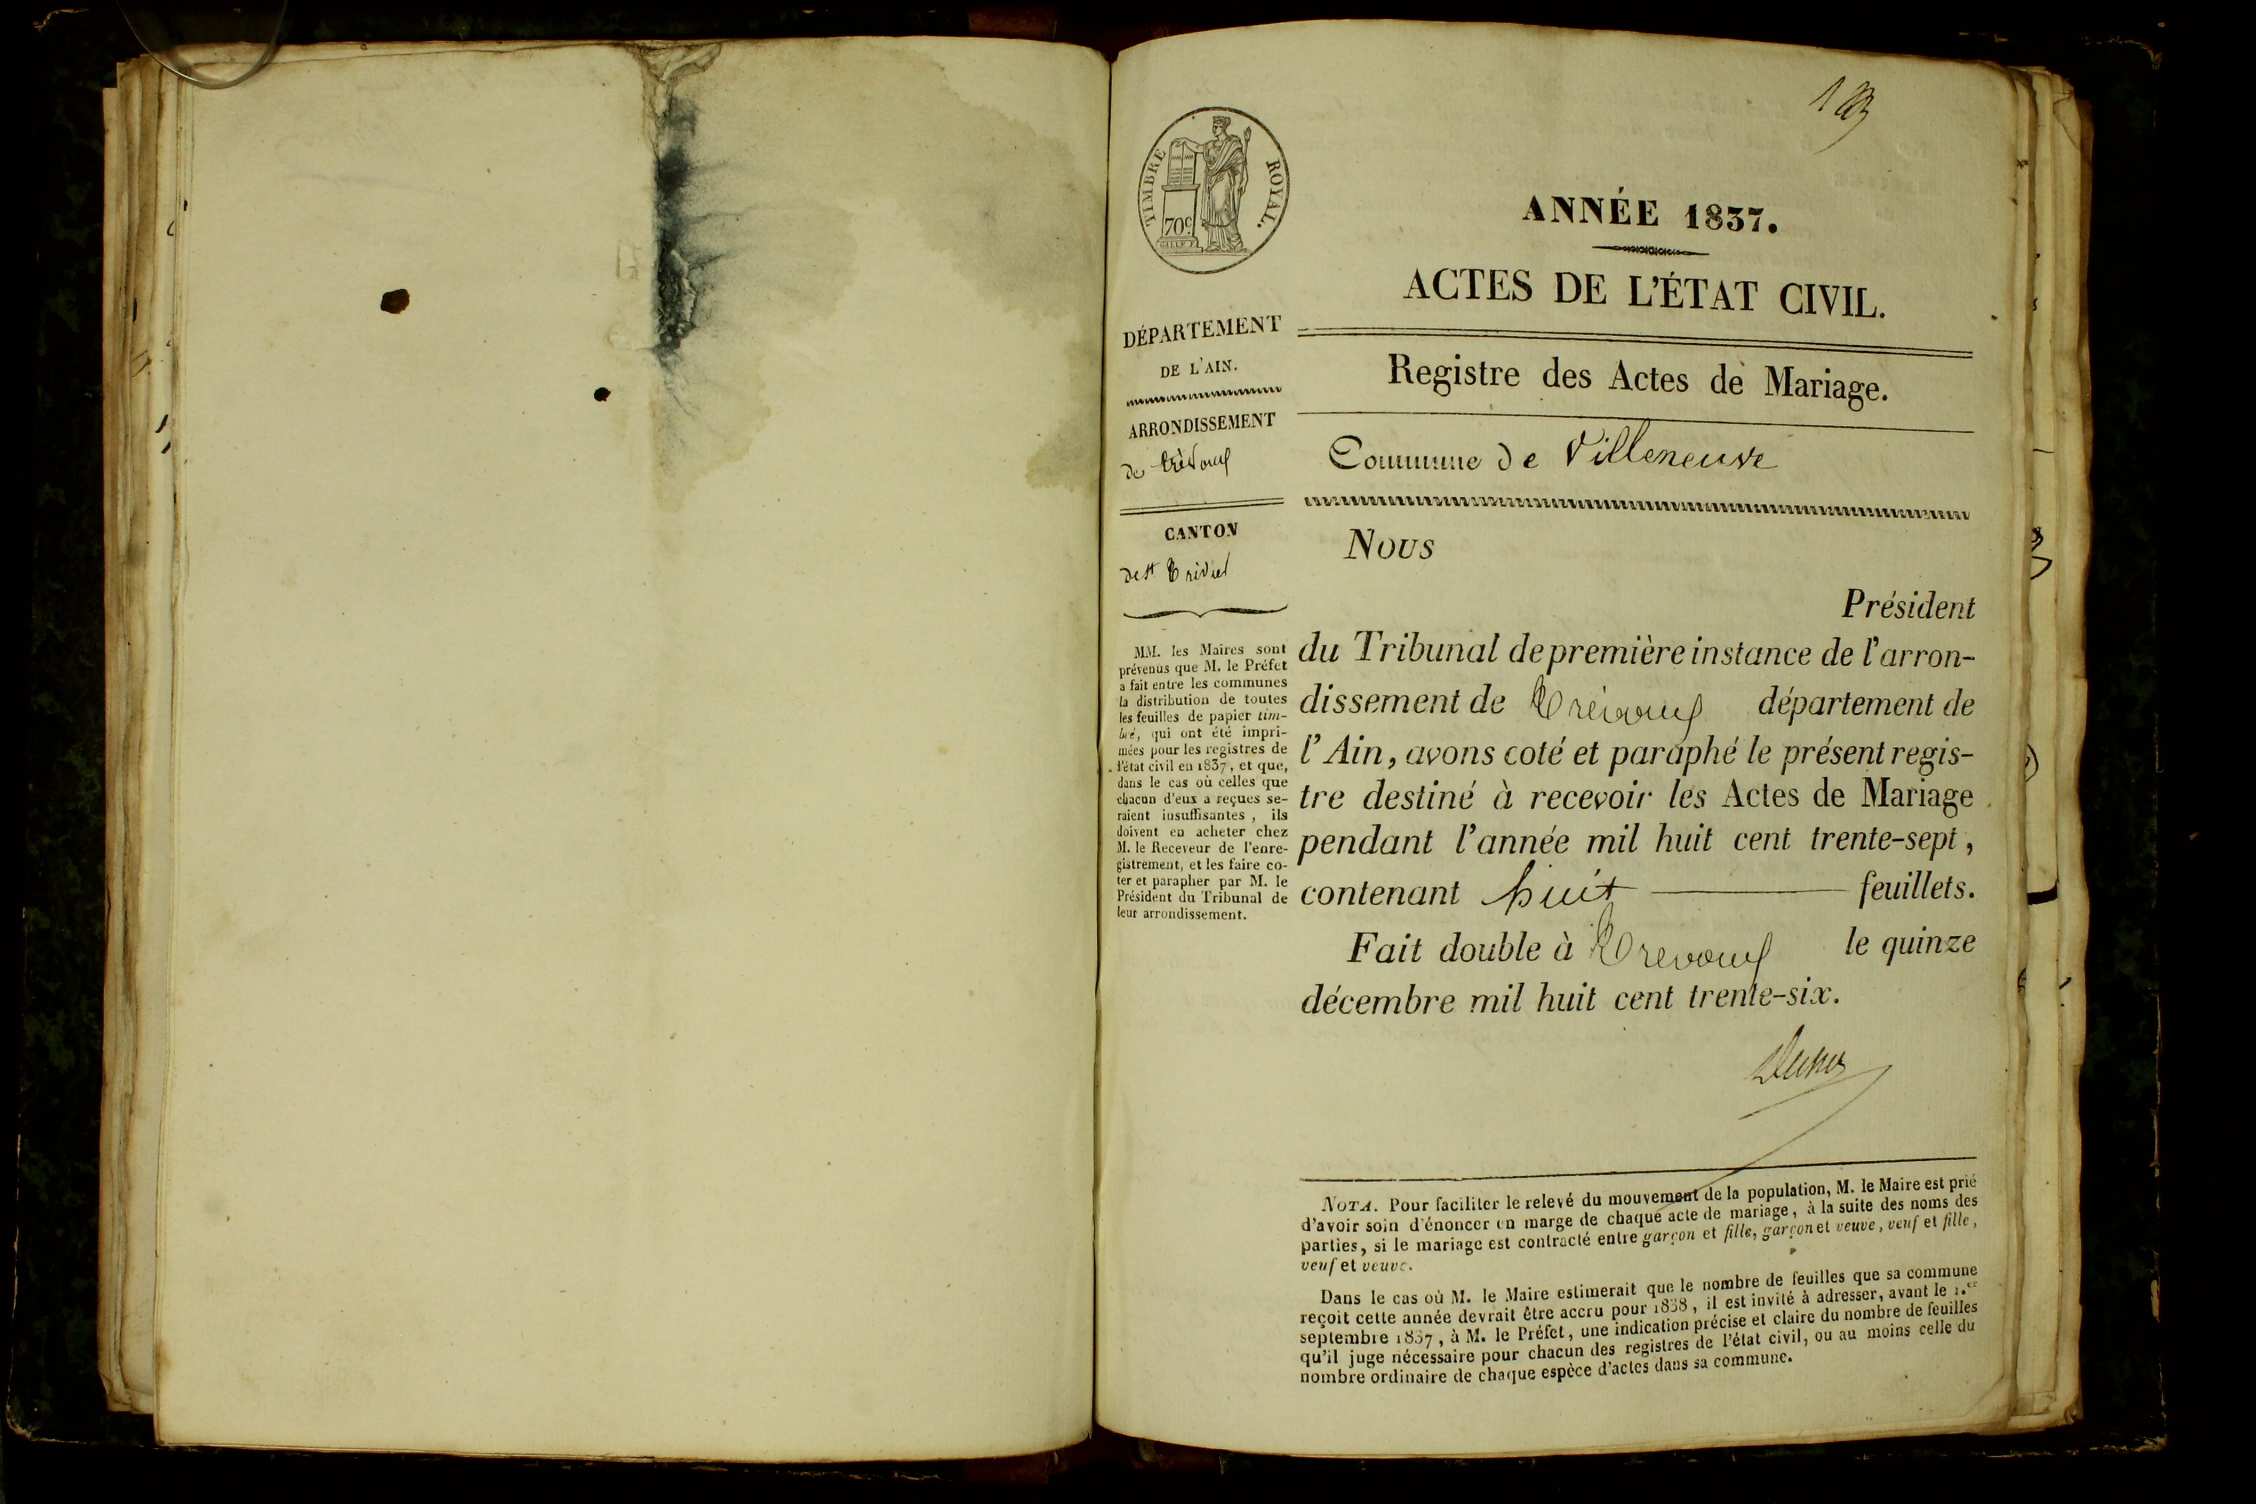 TIMBRE ROYAL.
70c
ANNÉE 1837.
ACTES DE L'ÉTAT CIVIL.
DÉPARTEMENT
DE L'AIN.
ARRONDISSEMENT
de Trévoux
CANTON
de St Trivier
MM. les Maires sont
prévenus que M. le Préfet
a fait entre les communes
la distribution de toutes
les feuilles de papier tim-
bré, qui ont été impri-
mées pour les registres de
l'état civil en 1837, et que,
dans le cas où celles que
chacun d'eux a reçues se-
raient insuffisantes, ils
doivent en acheter chez
M. le Receveur de l'enre-
gistrement, et les faire co-
ter et parapher par M. le
Président du Tribunal de
leur arrondissement.
Registre des Actes de Mariage.
Commune de Villeneuve
Nous
Président
du Tribunal de première instance de l'arron-
dissement de Trévoux département de
l'Ain, avons coté et paraphé le présent regis-
tre destiné à recevoir les Actes de Mariage
pendant l'année mil huit cent trente-sept,
contenant huit feuillets.
Fait double à Trevoux le quinze
décembre mil huit cent trente-six.
NOTA. Pour faciliter le relevé du mouvement de la population, M. le Maire est prié
d'avoir soin d'énoncer en marge de chaque acte de mariage, à la suite des noms des
parties, si le mariage est contracté entre garçon et fille, garçon et veuve, veuf et fille,
veuf et veuve.
Dans le cas où M. le Maire estimerait que le nombre de feuilles que sa commune
reçoit cette année devrait être accru pour 1838, il est invité à adresser, avant le 1.er
septembre 1837, à M. le Préfet, une indication précise et claire du nombre de feuilles
qu'il juge nécessaire pour chacun des registres de l'état civil, ou au moins celle du
nombre ordinaire de chaque espèce d'actes dans sa commune.